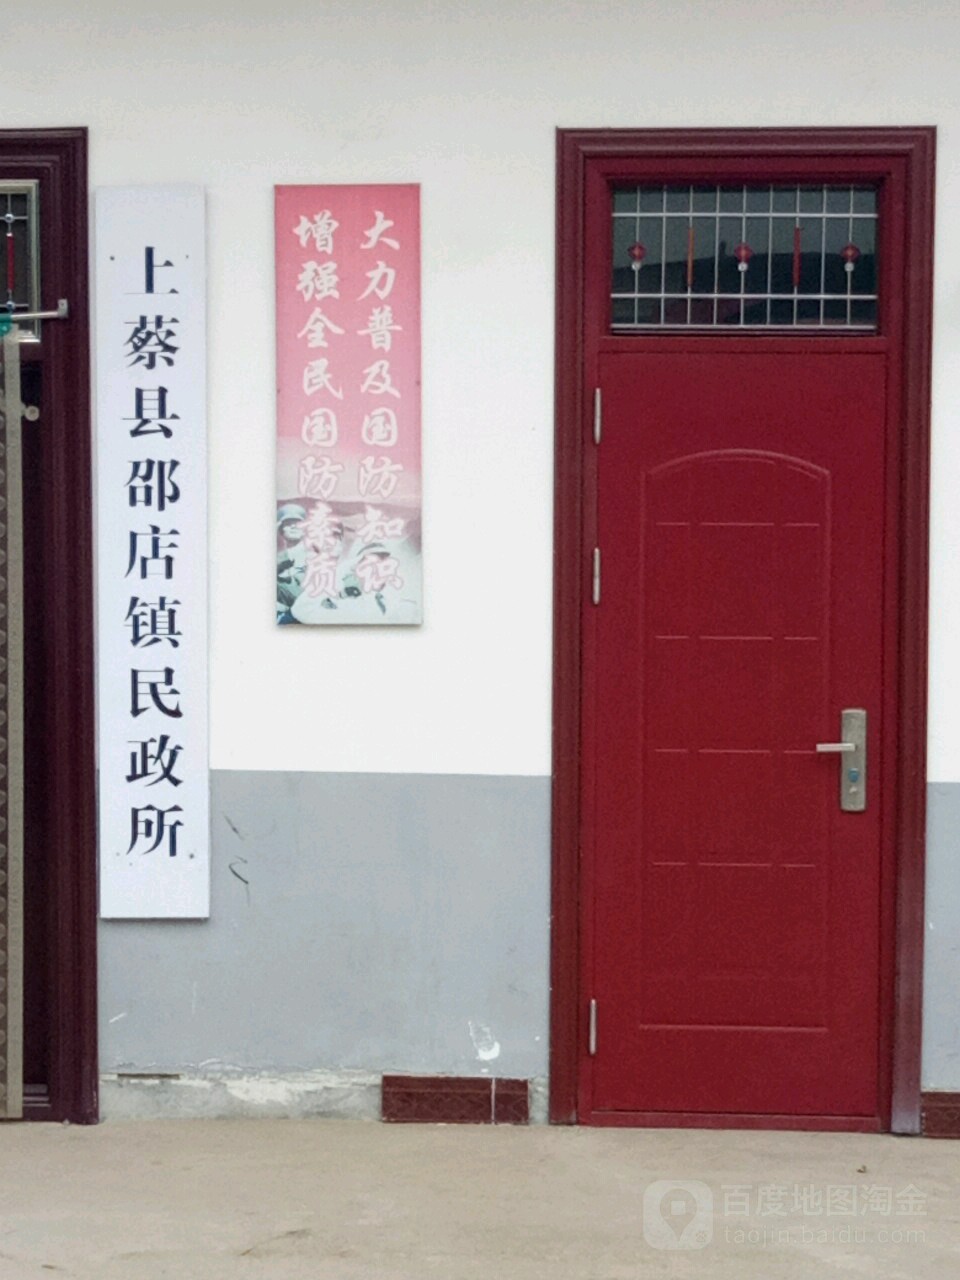 上蔡县邵店镇民政所
大力普及国防知识
增强全民国防素质
百度地图淘金
taojin.baidu.com